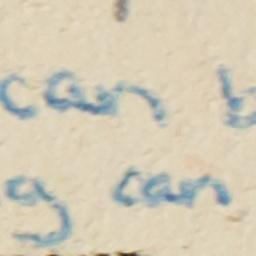 can b
g can